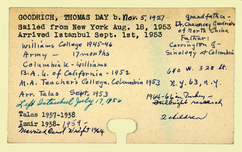 GOODRICH, THOMAS DAY b. Nov 5, 1927
Grandfather -
Sailed from New York Aug. 18, 1953
Dr. Chauncey Goodrich
of North China
Arrived Istanbul Sept. 1st, 1953
Father:
Williams College 1945-46
Carrington G -
Army - 17 months
Sinology at Columbia
Columbia U - Williams
B.A. U. of California - 1952
640 W. 238 St.
M.A. Teachers College, Columbia 1953
N.Y. 63, N.Y.
Arr. Talas Sept, 1953
1964-66 in Turkey -
Left Istanbul July 17, 1956
Fulbright research
Talas 1957-1958
2 children
Izmir 1958- 1959-
Married Carol Wright 1964